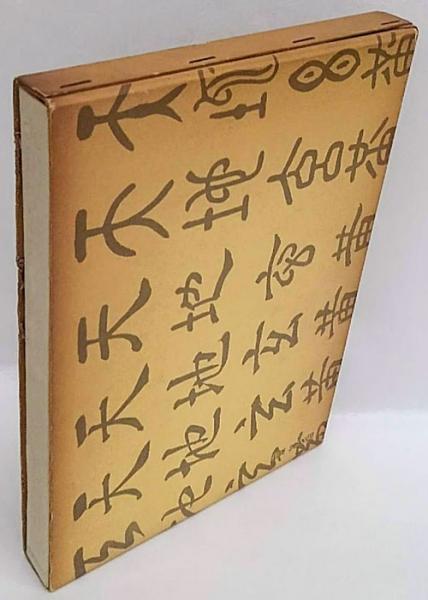 天地玄黄
天地玄黄
天地玄黄
天地玄黄
天地玄黄
地玄